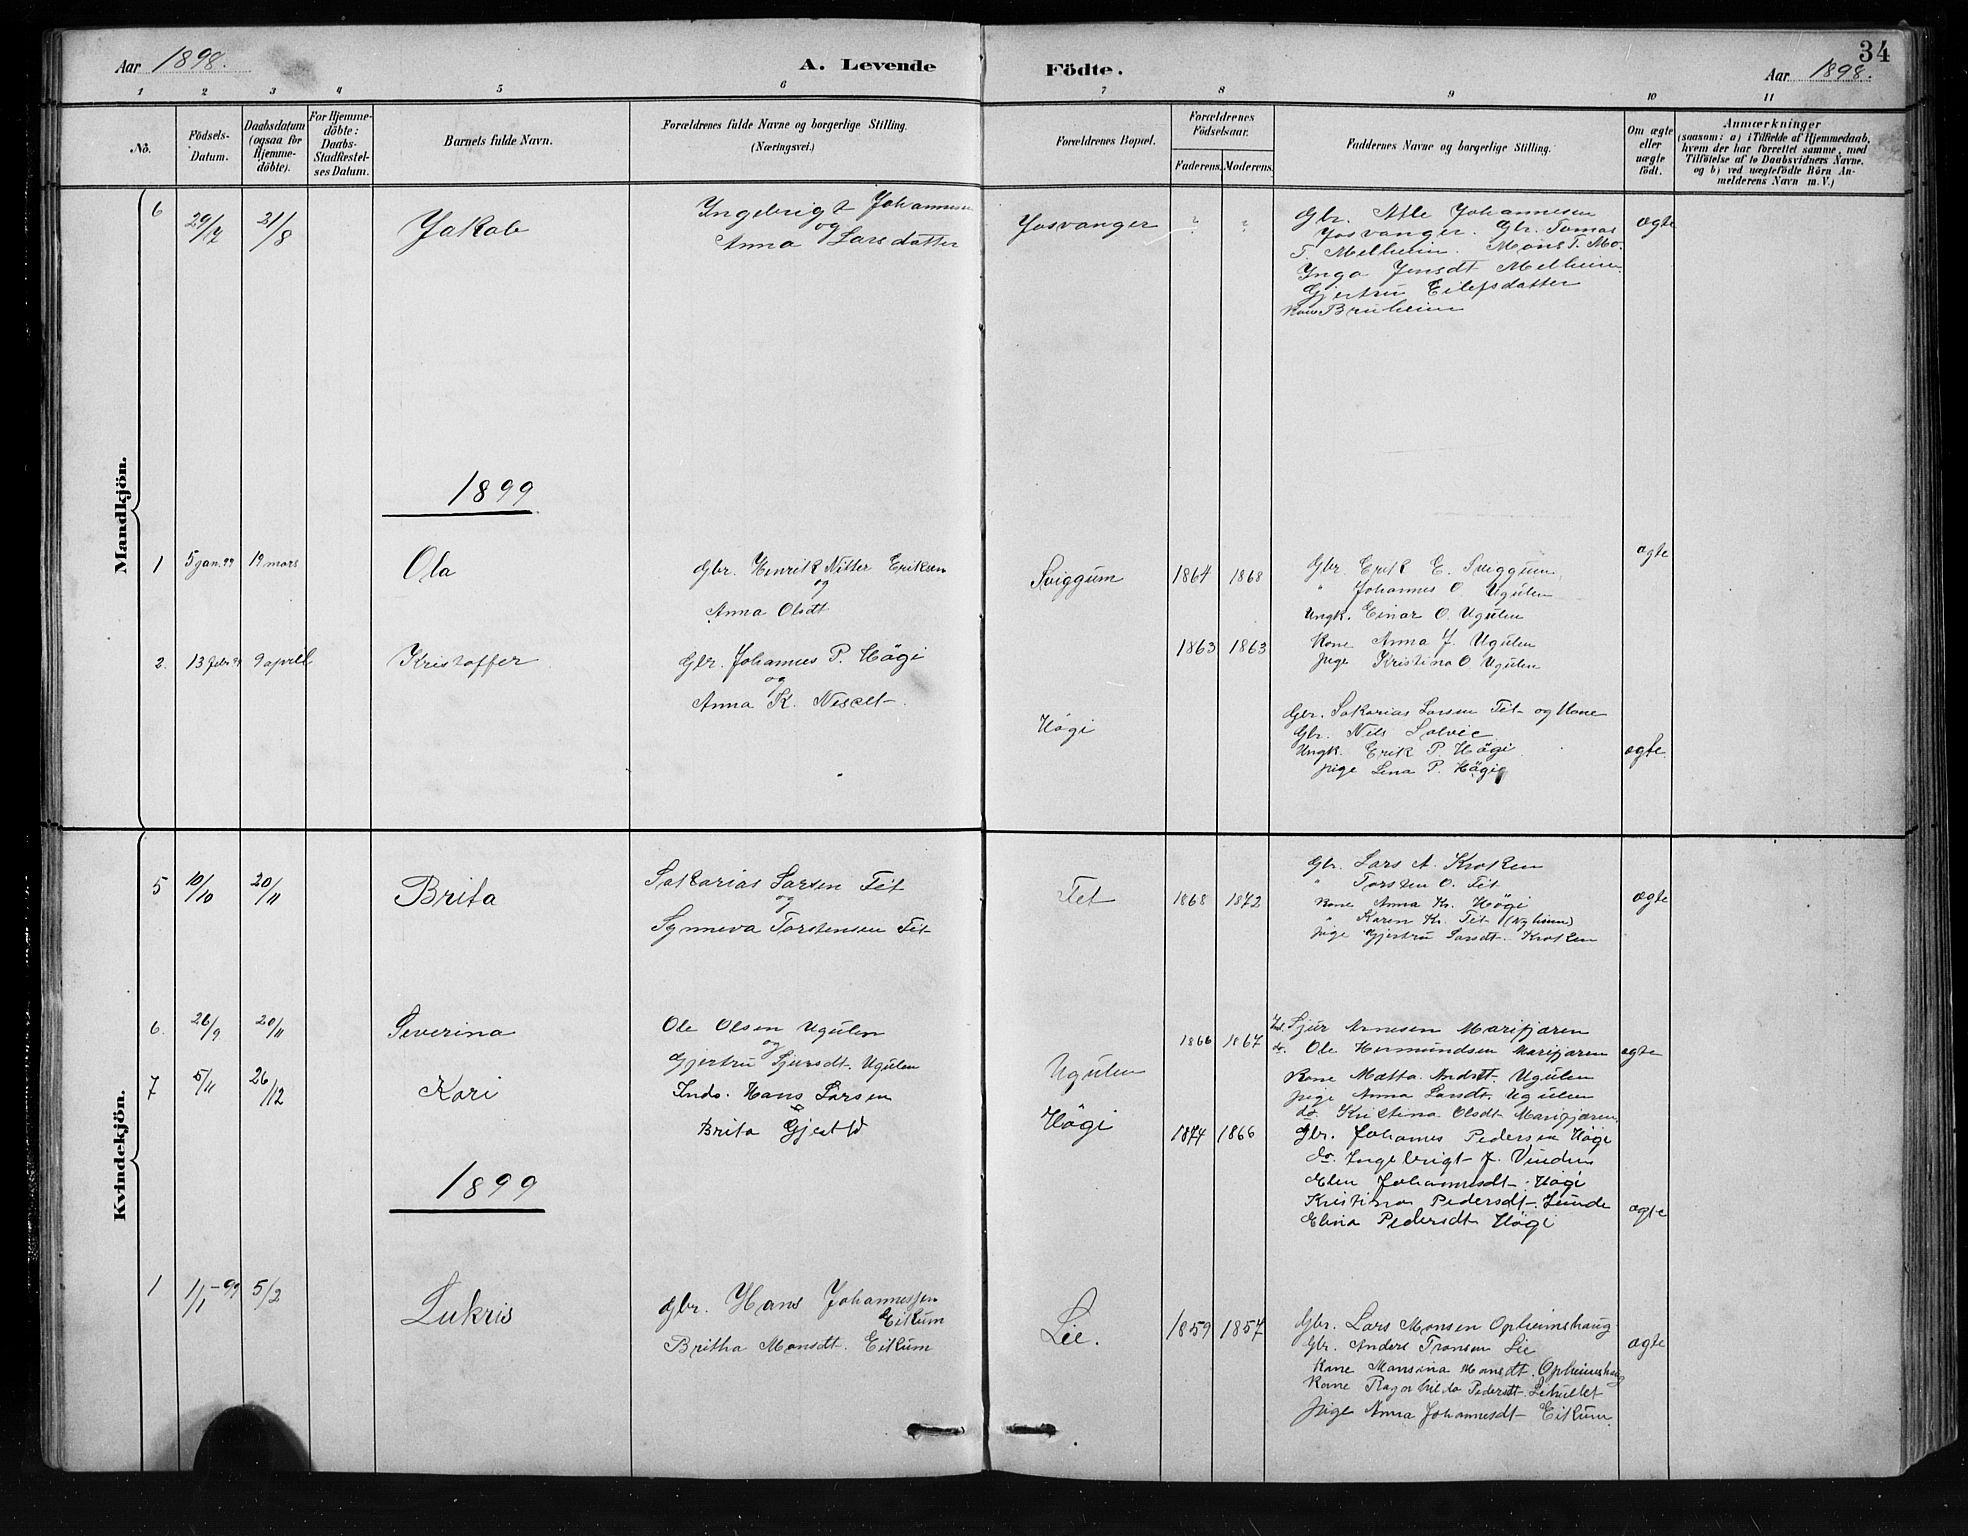 34
Aar 1898.
A. Levende Födte.
Aar 1898.
1 2 3 4 5 6 7 8 9 10 11
No.
Födsels-Datum.
Daabsdatum (ogsaa for Hjemme-döbte).
For Hjemme-döbte: Daabs-Stadfæstel-ses Datum.
Barnets fulde Navn.
Forældrenes fulde Navne og borgerlige Stilling.
(Næringsvei.)
Forældrenes Bopæl.
Forældrenes Födselsaar.
Faderens. Moderens.
Faddernes Navne og borgerlige Stilling.
Om ægte eller uægte födt.
Anmærkninger
(saasom: a) i Tilfælde af Hjemmedaab,
hvem der har forrettet samme, med
Tilföielse af to Daabsvidners Navne,
og b) ved uægtefödte Börn An-
melderens Navn m. V.)
Mandkjön.
6 29/7 21/8 Jakob
Ingebrigt Johannesen
og
Anna Larsdatter
Josvanger
? ?
Gbr. Atle Johannesen
Josvanger. Gbr. Tomas
T. Melheim. Mons T. Mo.
Inga Jensdt Melheim
Gjertru Eilefsdatter
Kone Bruheim
ægte
1899
1 5 jan. 99 19 mars Ola
Gbr. Henrik Nitter Eriksen
og
Anna Olsdt
Sviggum
1864 1868
Gbr. Erik E. Sviggum
" Johannes O. Ugulen
Ungk. Einar O. Ugulen
Kone Anna J. Ugulen
Pige Kristina O. Ugulen
ægte
2. 13 febr 99 9 april Kristoffer
Gbr. Johannes P. Högi
og
Anna K. Neset
Högi
1863 1863
Gbr. Sakarias Larsen Fet og Kone
Gbr. Nils Solvie
Ungk. Erik P. Högi
Pige Lina P. Högi
ægte
Kvindekjön.
5 10/10 20/11 Brita
Sakarias Larsen Fet
og
Synneva Torstensen Fet
Fet
1868 1872
Gbr. Lars A. Kroken
" Torsten O. Fet
Kone Anna Kr. Högi
" Karen Kr. Fet (Nyheim)
Pige Gjertru Larsdt. Kroken
ægte
6. 26/9 20/11 Severina
Ole Olsen Ugulen
og
Gjertru Sjursdt. Ugulen
Ugulen
1866 1867
Ind. Sjur Arnesen Marifjæren
do. Ole Hermundsen Marifjæren
Kone Matta Andrdt. Ugulen
Pige Anna Larsdt. Ugulen
do. Kristina Olsdt Marifjæren
ægte
7 5/11 26/12 Kari
Inds. Hans Larsen
&
Brita Gjertsd
Högi
1874 1866
Gbr. Johannes Pedersen Högi
do. Ingebrigt J. Vinden
Elen Johannesdt. Högi
Kristina Pedersdt. Lunde
Elina Pedersdt Högi
ægte
1899
1 1/1-99 5/2 Lukris
Gbr. Hans Johannessen
Eikum
Britha Monsdt. Eikum
Lie.
1859 1857
Gbr. Lars Monsen Opheimshaug
Gbr. Anders Tronsen Lie
Kone Monsina Monsdt. Opheimshaug
Kone Ragnhilda Pedersdt.
Pige Anna Johannesdt Eikum
ægte